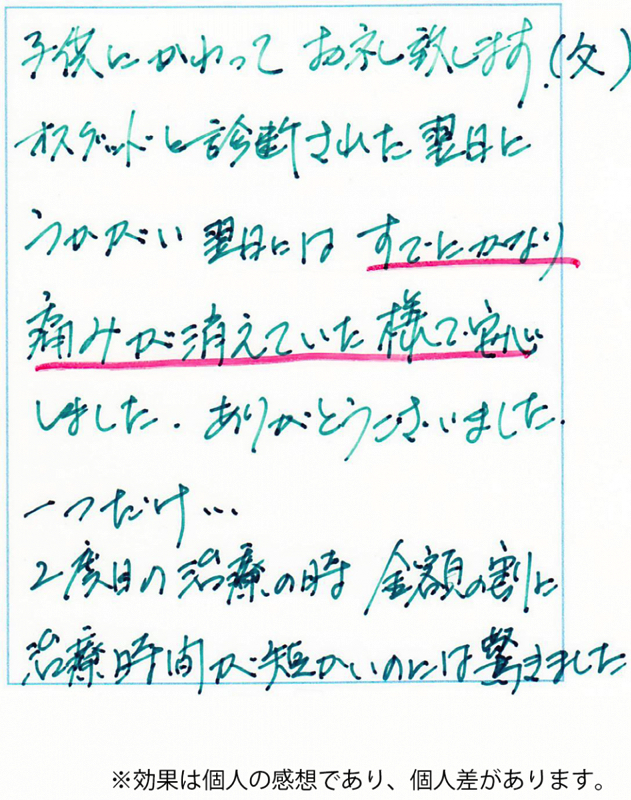 子供にかわって お礼し致します。(父)
オスグットと診断された翌日に
うかがい 翌日には すでにかなり
痛みが消えていた様で安心
しました。ありがとうございました。
一つだけ…
2度目の治療の時 金額の割に
治療時間が短かいのには驚きました
※効果は個人の感想であり、個人差があります。